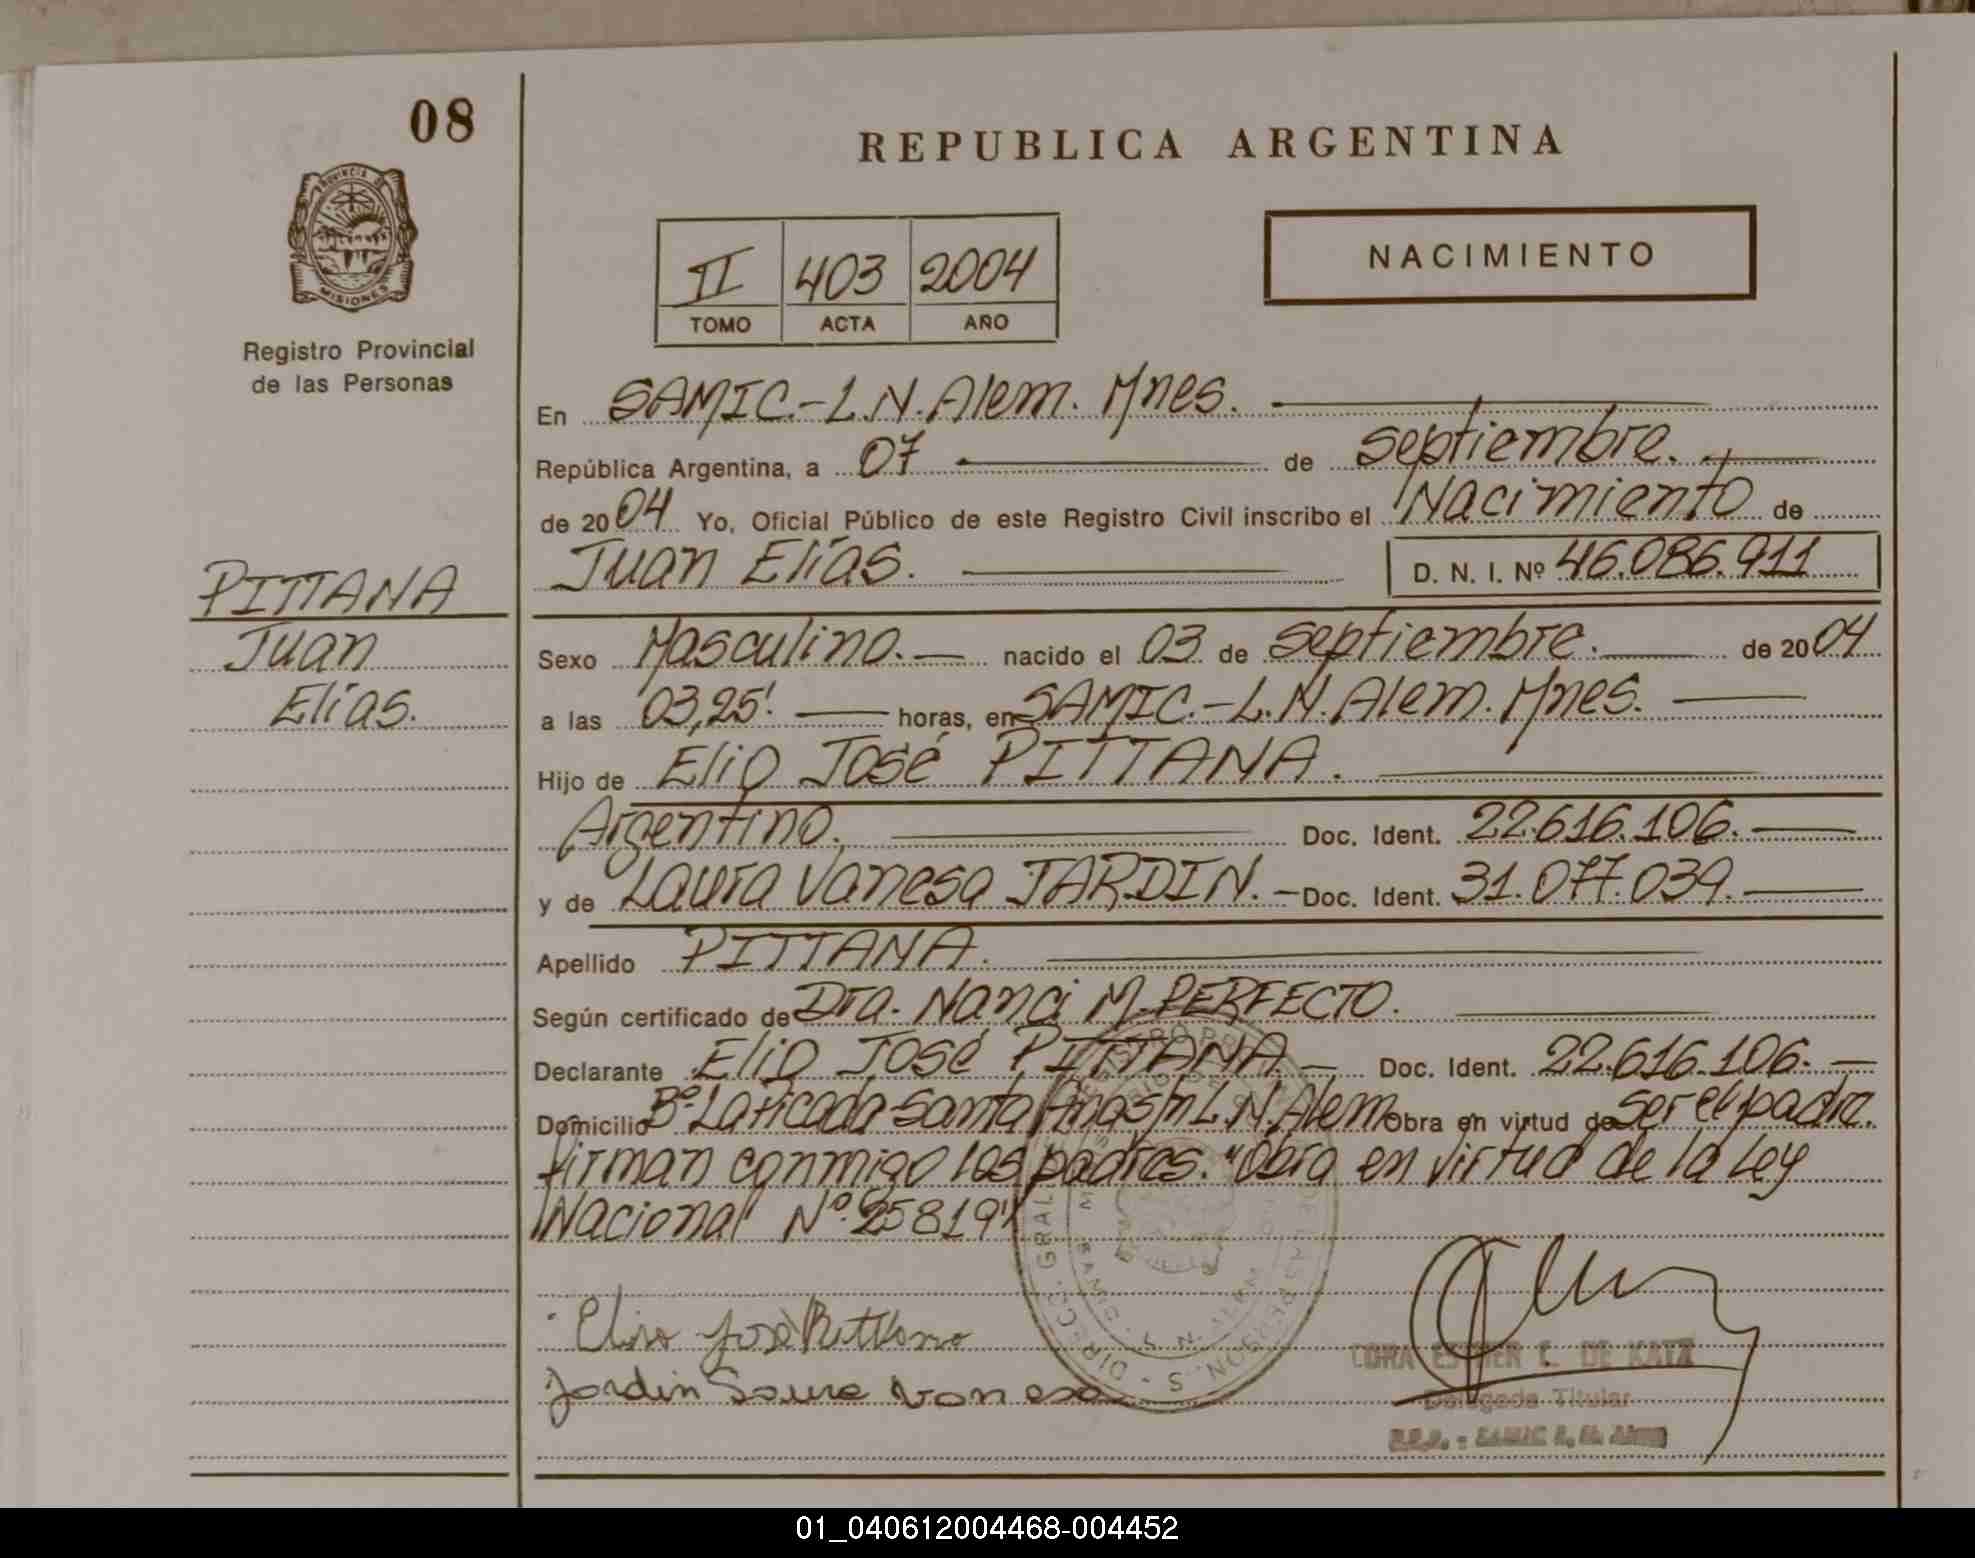 08
REPUBLICA ARGENTINA
PROVINCIA DE
MISIONES
Registro Provincial
de las Personas
II 403 2004
TOMO ACTA AÑO
NACIMIENTO
En SAMIC.-L.N.Alem. Mnes.
República Argentina, a 07 de septiembre.
de 2004 Yo, Oficial Público de este Registro Civil inscribo el Nacimiento de
Juan Elías. D. N. I. Nº 46.086.911
PITTANA
Juan
Elías.
Sexo Masculino.- nacido el 03 de septiembre. de 2004
a las 03,25'. horas, en SAMIC.-L.N.Alem. Mnes.
Hijo de Elio José PITTANA.
Argentino. Doc. Ident. 22.616.106.
y de Laura Vanesa JARDIN.- Doc. Ident. 31.077.039.
Apellido PITTANA.
Según certificado de Dra. Nanci M. PERFECTO.
Declarante Elio José PITTANA.- Doc. Ident. 22.616.106.-
Domicilio Bº Laticada Santa L.N.Alem Obra en virtud de ser el padre.
Firman conmigo los padres. "Obra en virtud de la Ley
Nacional Nº 25819"
Elio José Pittana
Jardin Laura Vanesa
CORA ESTHER C. DE KATZ
Delegada Titular
R.P.P. - SAMIC L. N. Alem
01_040612004468-004452